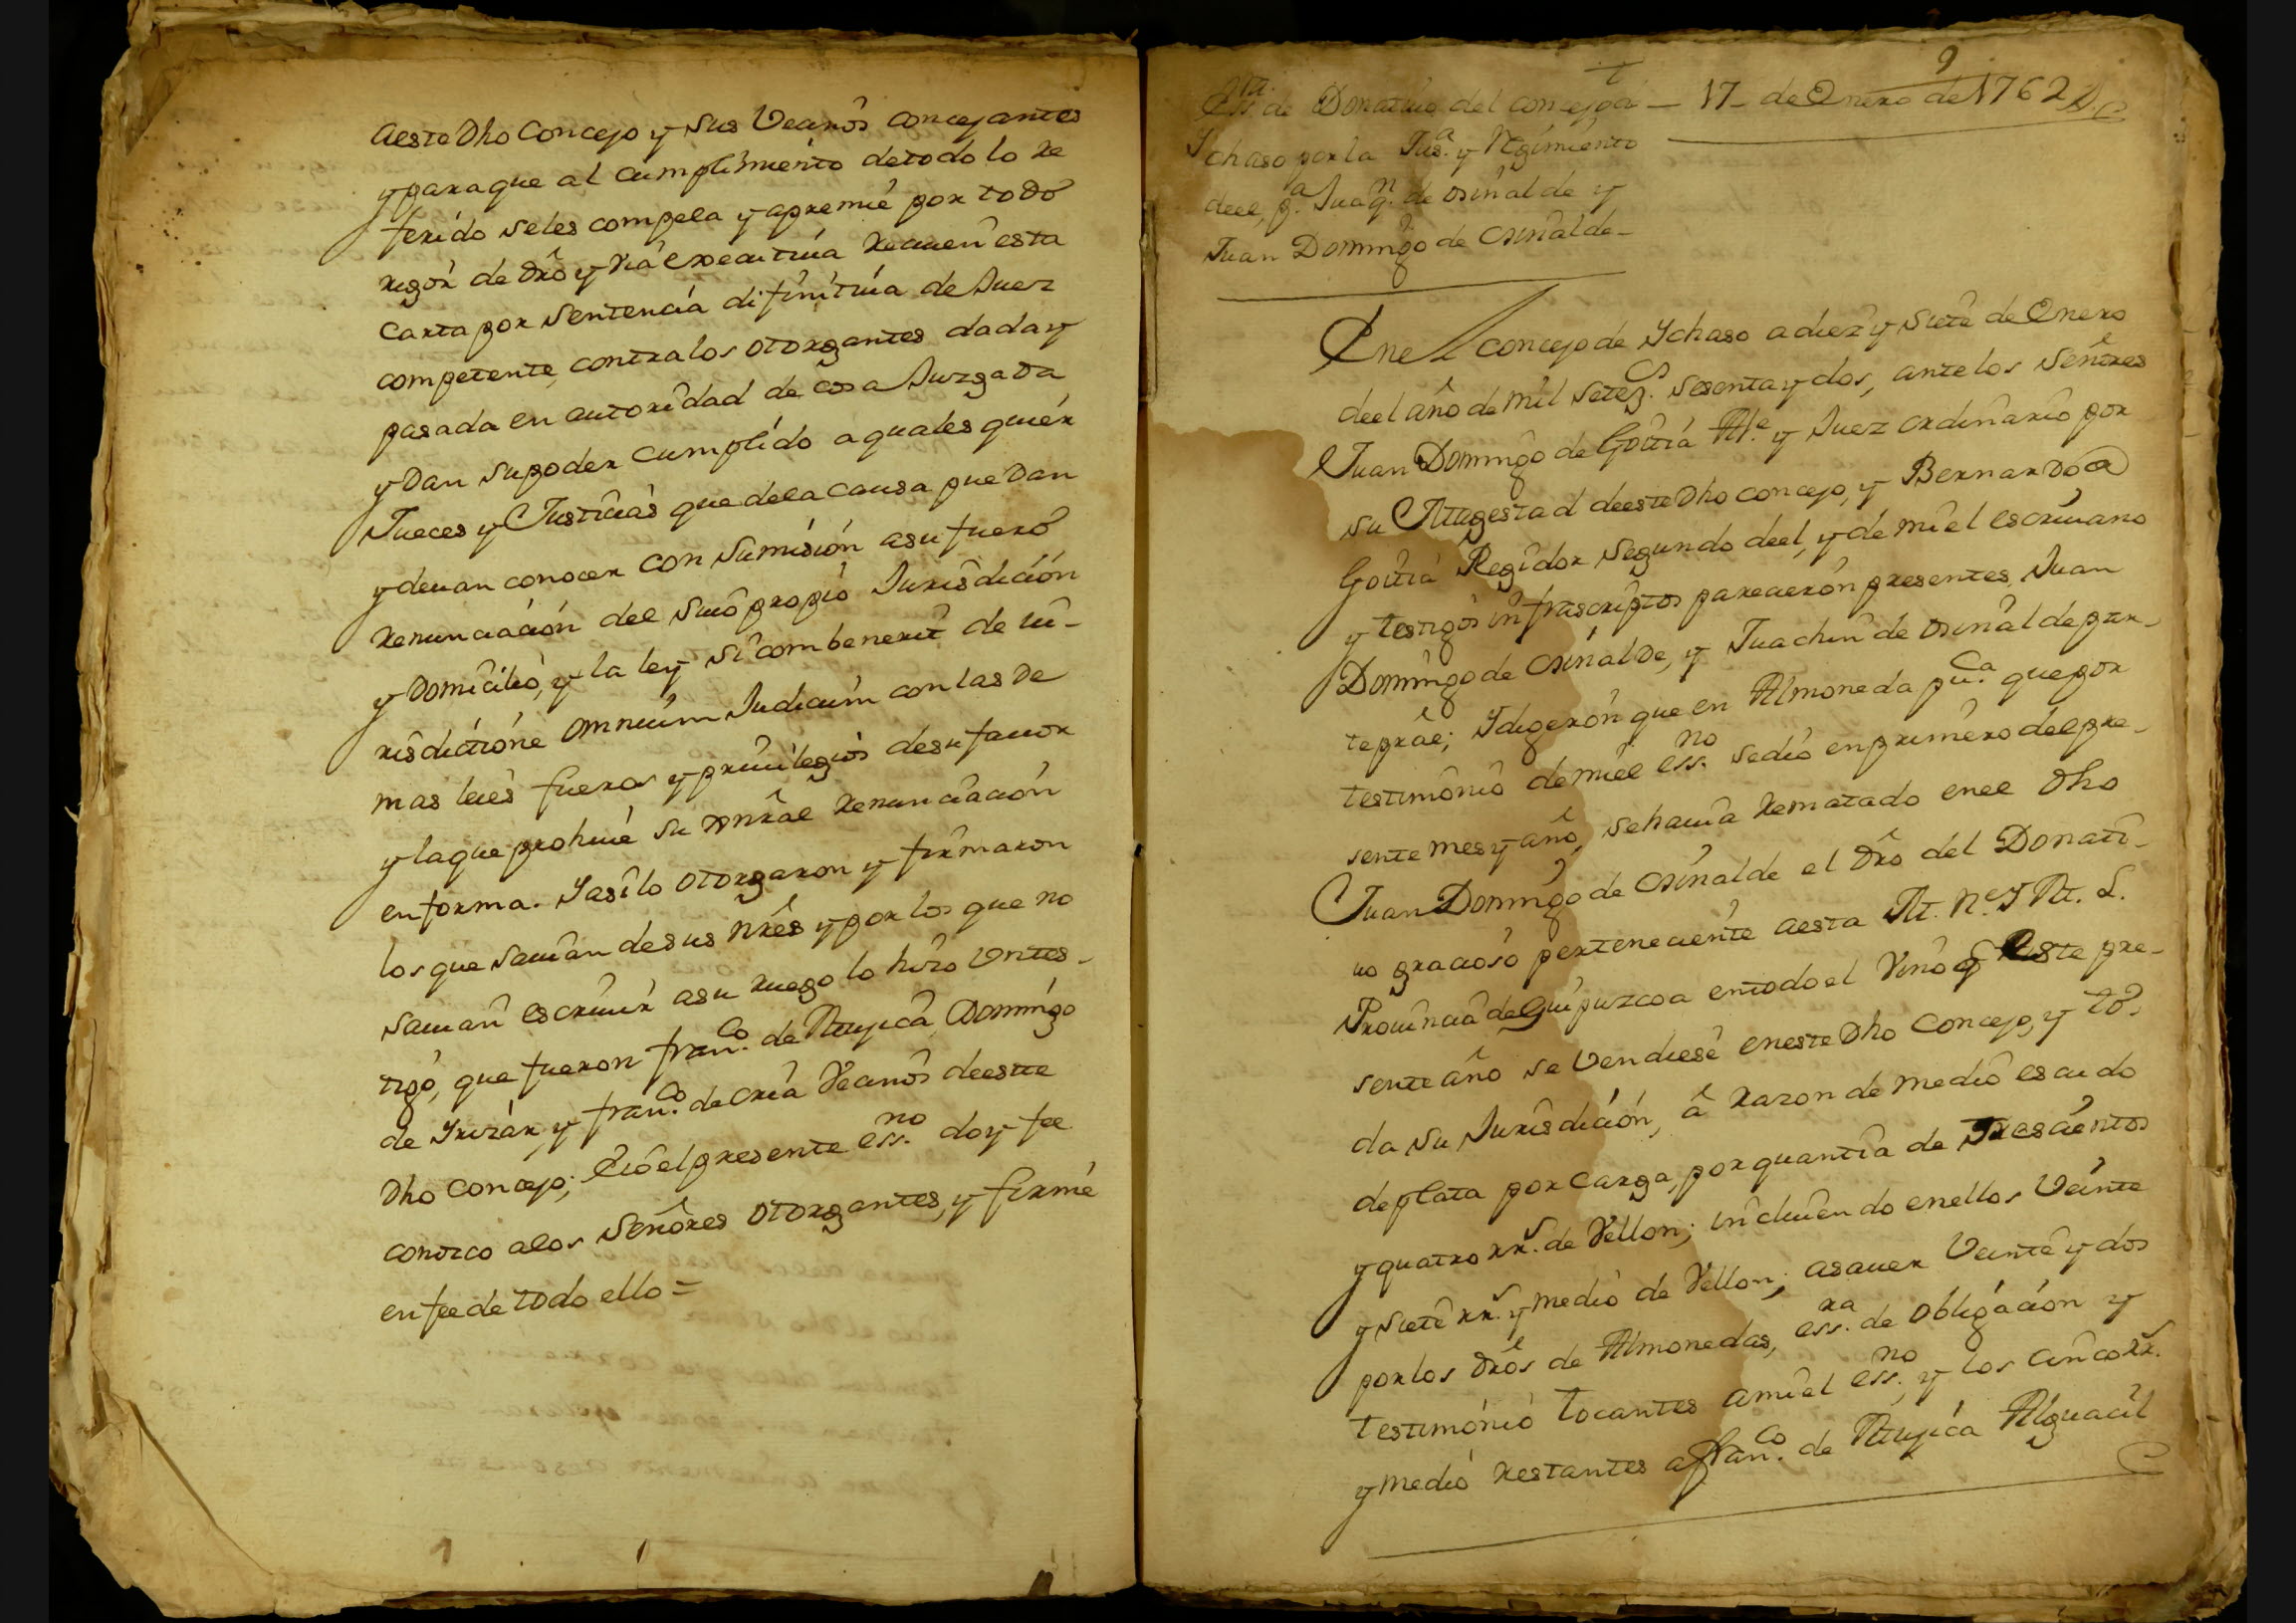 aeste Dho Concejo y sus Vecinos concejantes
y para que al cumplimiento detodo lo re
ferido seles compela y apremie por todo
rigor de dro y via executiua reciuen esta
carta por sentencia difinitiua de Juez
competente contralos otorgantes dada y
pasada en autoridad de cosa Juzgada
y Dan su poder cumplido a quales quier
Jueces y Justicias que dela causa puedan
y deuan conocer con sumision asu fuero
renunciacion del suio propio Jurisdicion
y Domicilio, y la ley si combenerit de iu-
risdictione omnium Judicum con las de
mas leies fueros y priuilegios desu fauor
y la que prohiue su genral renunciacion
en forma. Y asilo otorgaron y firmaron
los que sauian desus nres y por los que no
sauian escriuir asu ruego lo hizo Vn tes-
tigo, que fueron franco. de Mujica, Domingo
de Yrizar, y franco. de Oria Vecinos deeste
Dho Concejo; e io el presente essno. doy fee
conozco alos Señores otorgantes, y firmé
en fee de todo ello =
9
Essra. de Donatiuo del concejo de — 17 - de Enero de 1762
Ychaso por la Jusa. y Regimiento
deel, pa. Juaqn. de osinalde y
Juan Domingo de Osinalde -
En el concejo de Ychaso a diez y siete de Enero
deel año de mil setezs. sesenta y dos, ante los señores
Juan Domingo de Goitia Ale. y Juez ordinario por
su Magestad deeste Dho concejo, y Bernardo de
Goitia Regidor segundo deel, y de mi el escriuano
y testigos infrascriptos parecieron presentes, Juan
Domingo de Osinalde, y Juachin de osinalde par-
te prâl; Y digeron que en Almoneda puca. que por
testimonio de miel essno. sedio en primero del pre-
sente mes y año, se hauia rematado en el Dho
Juan Domingo de Osinalde el dro del Donati-
uo gracioso perteneciente aesta M. N. Y M. L.
Prouincia de Guipuzcoa en todo el Vino q este pre-
sente año se Vendiese en este Dho Concejo, y to-
da su Jurisdicion, â razon de medio escudo
de plata por carga, por quantia de Trescientos
y quatro rrs. de Vellon; incluiendo en ellos Veinte
y siete rrs. y medio de Vellon; asauer Veinte y dos
por los dros de Almonedas, essra. de obligacion y
testimonio tocantes ami el essno., y los cinco rrs.
y medio restantes a Franco. de Mujica Alguacil